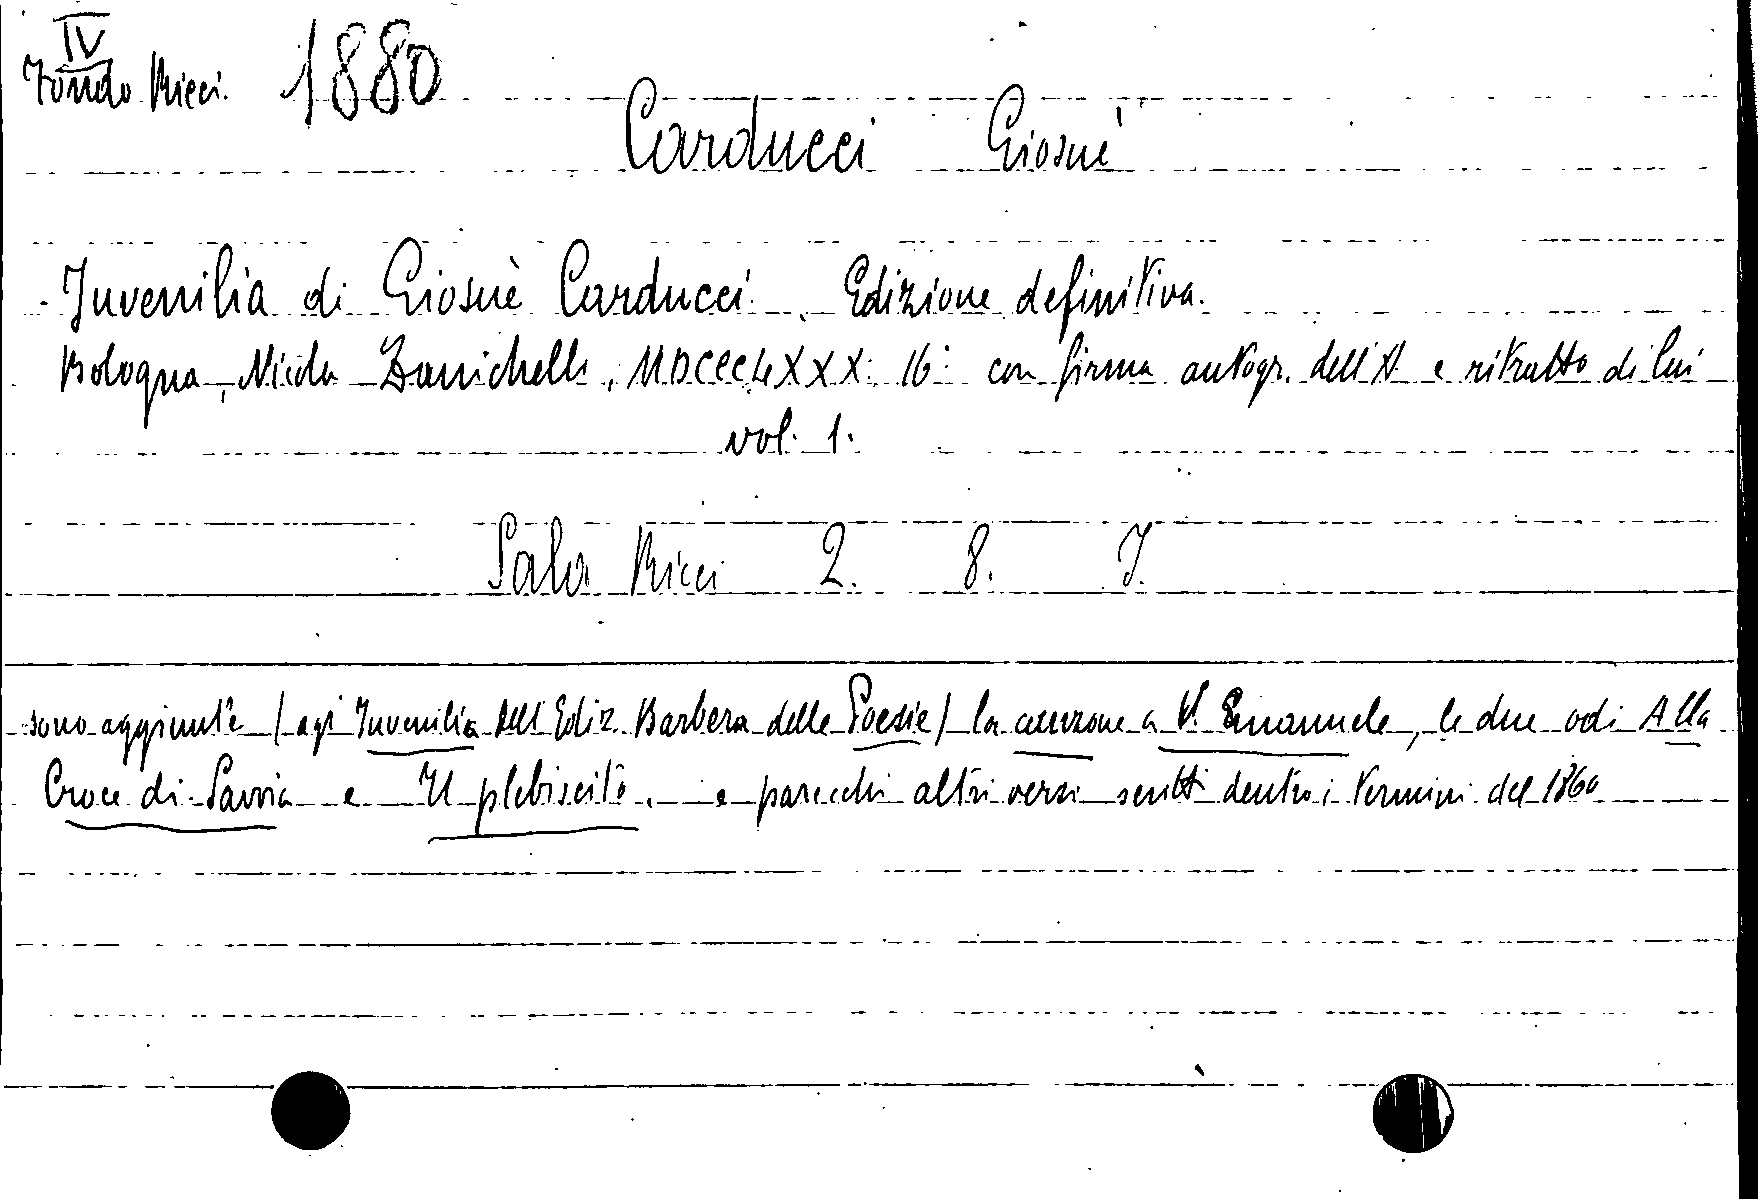 IV
Fondo Ricci. 1880
Carducci Giosuè
Juvenilia di Giosuè Carducci. Edizione definitiva.
Bologna, Nicola Zanichelli, MDCCCLXXX. 16° con firma autogr. dell'A. e ritratto di lui
vol. 1.
Sala Ricci 2. 8. I.
sono aggiunte (agl'Juvenilia dell'Ediz. Barbera delle Poesie) la canzone a V. Emanuele, le due odi Alla
Croce di Savoia e Il plebiscito. e parecchi altri versi scritti dentro i termini del 1860